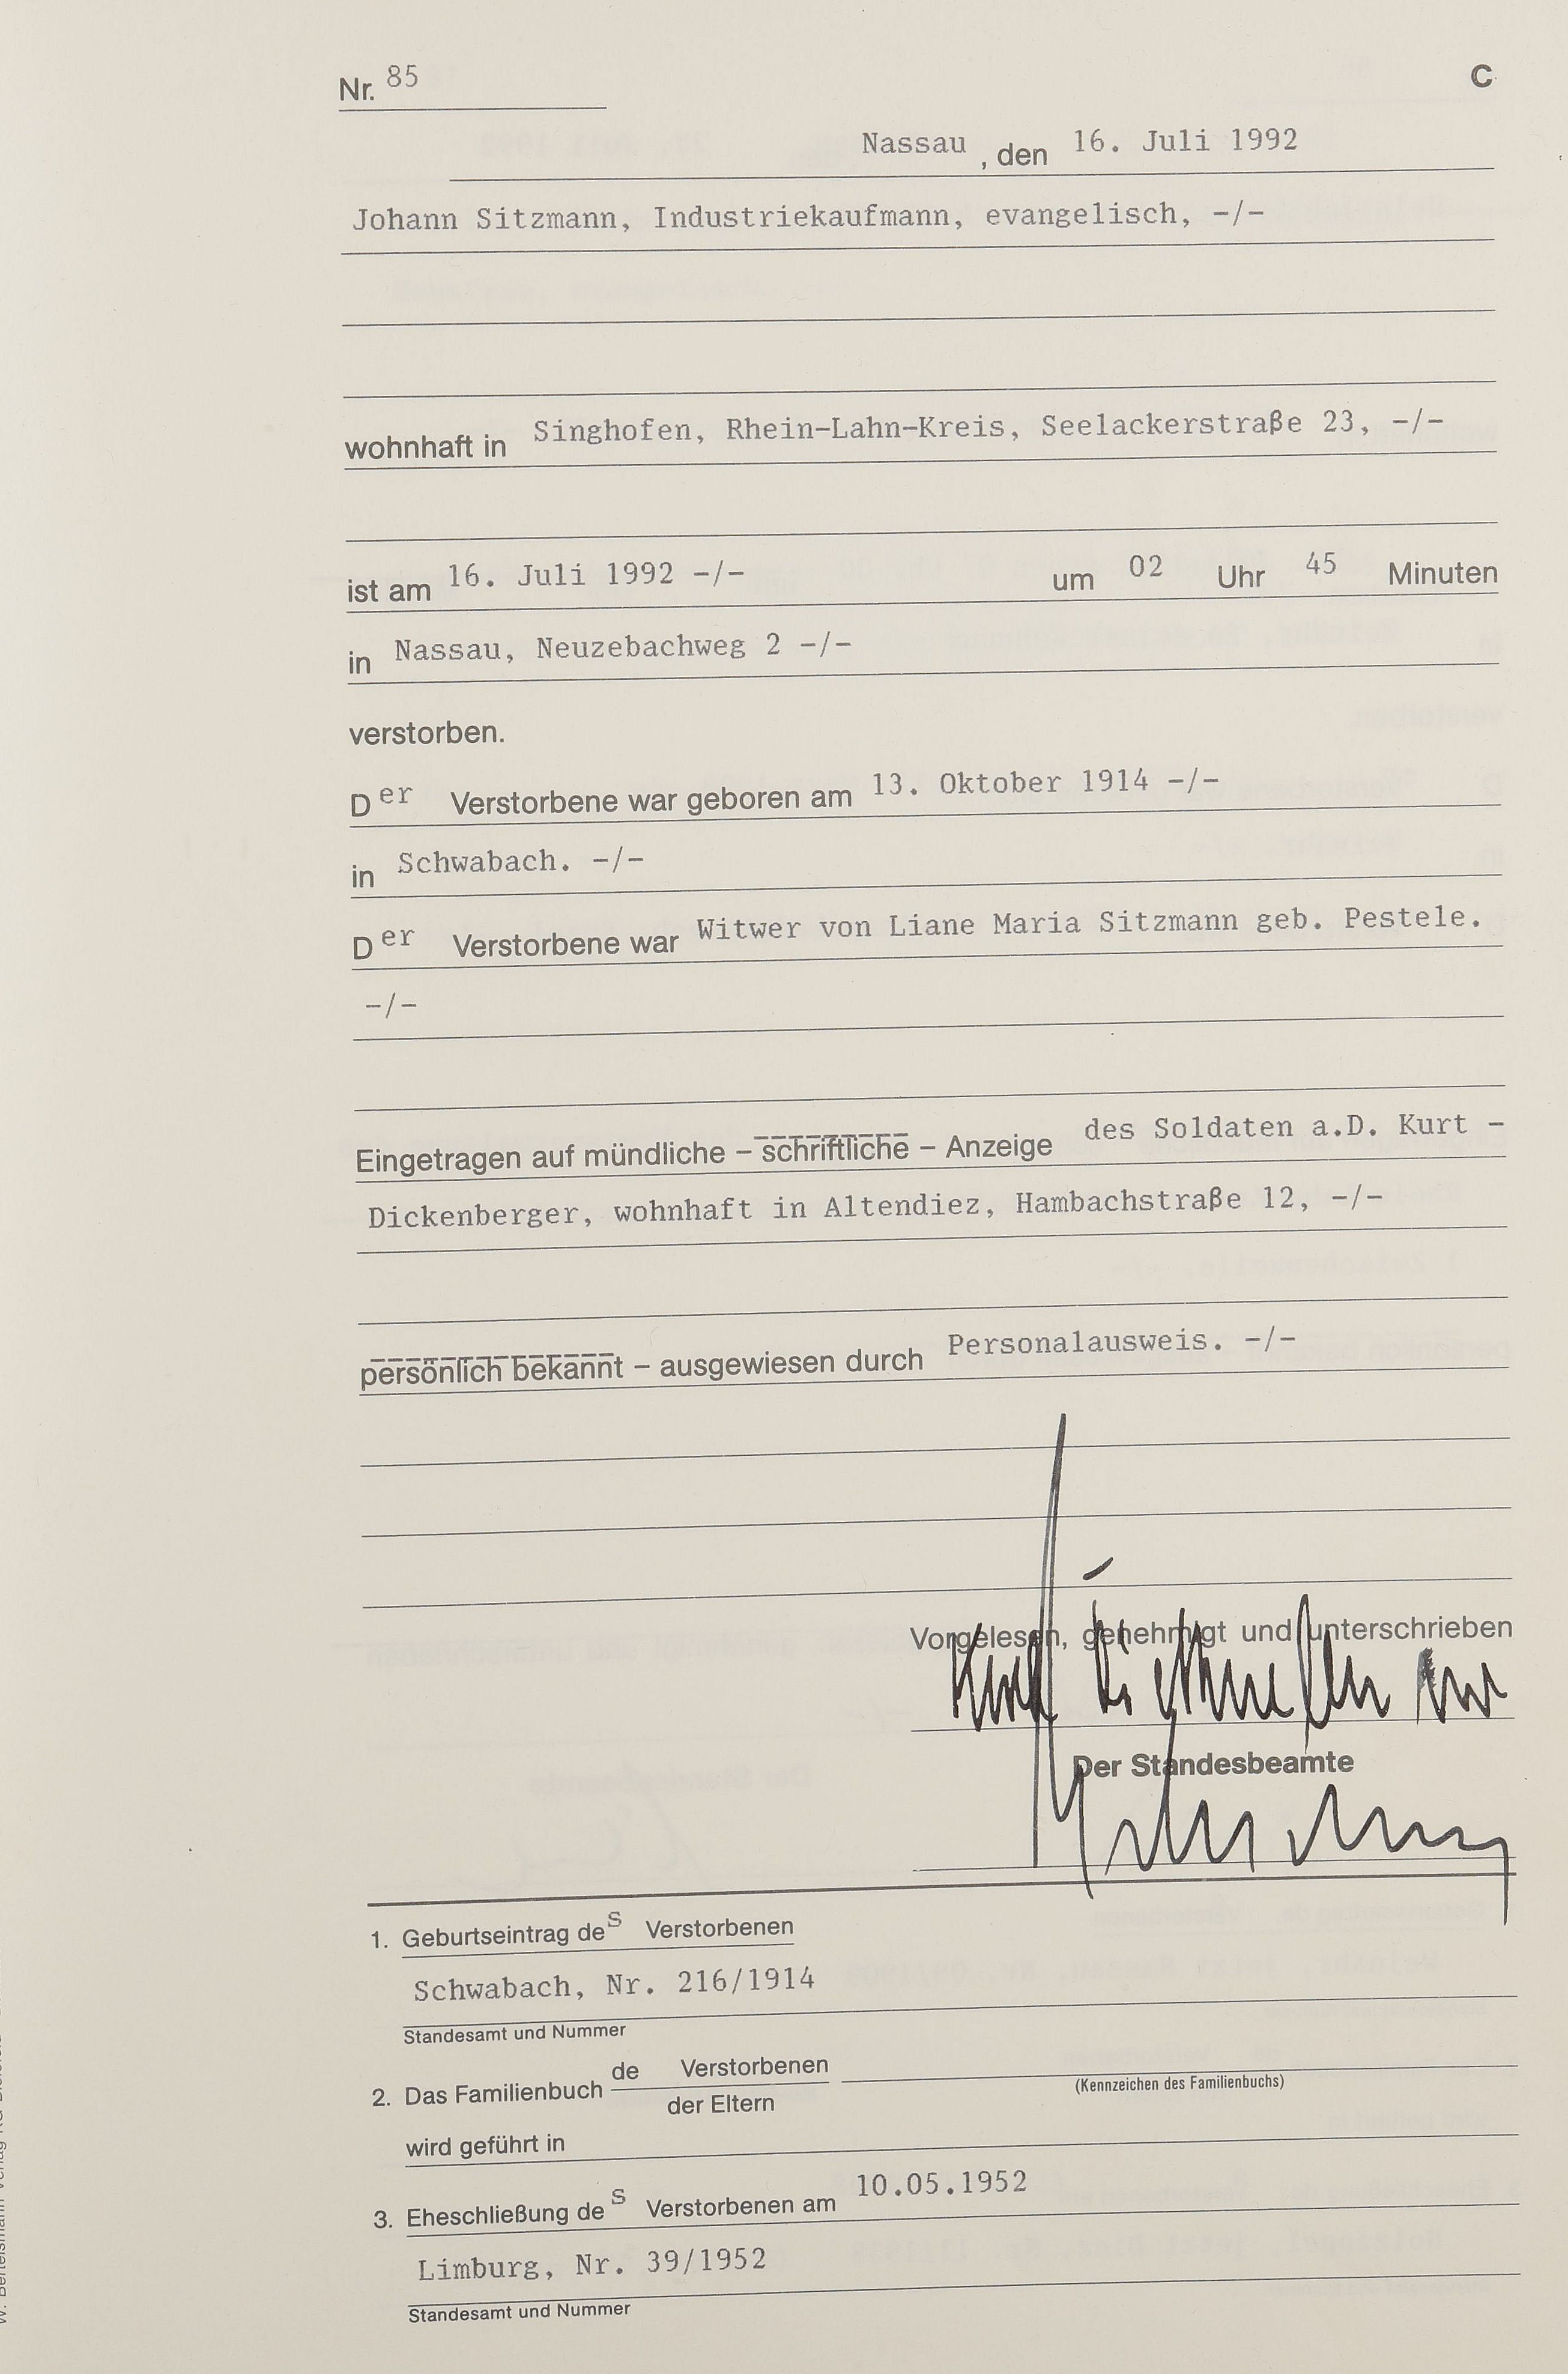 Nr. 85
C
Nassau, den 16. Juli 1992
Johann Sitzmann, Industriekaufmann, evangelisch, -/-
wohnhaft in Singhofen, Rhein-Lahn-Kreis, Seelackerstraße 23, -/-
ist am 16. Juli 1992 -/- um 02 Uhr 45 Minuten
in Nassau, Neuzebachweg 2 -/-
verstorben.
Der Verstorbene war geboren am 13. Oktober 1914 -/-
in Schwabach. -/-
Der Verstorbene war Witwer von Liane Maria Sitzmann geb. Pestele.
-/-
Eingetragen auf mündliche – schriftliche – Anzeige des Soldaten a.D. Kurt -
Dickenberger, wohnhaft in Altendiez, Hambachstraße 12, -/-
persönlich bekannt – ausgewiesen durch Personalausweis. -/-
Vorgelesen, genehmigt und unterschrieben
Kurt
Der Standesbeamte
1. Geburtseintrag des Verstorbenen
Schwabach, Nr. 216/1914
Standesamt und Nummer
2. Das Familienbuch de Verstorbenen
der Eltern
(Kennzeichen des Familienbuchs)
wird geführt in
3. Eheschließung des Verstorbenen am 10.05.1952
Limburg, Nr. 39/1952
Standesamt und Nummer